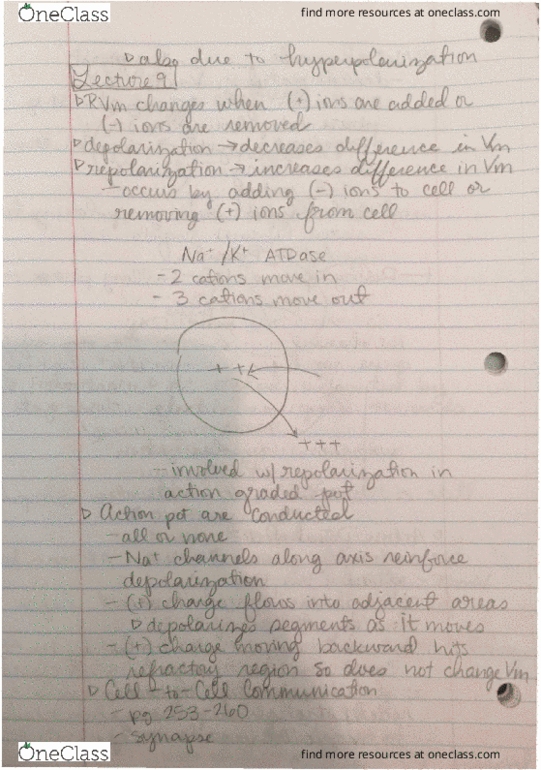 OneClass
find more resources at oneclass.com
▷ also due to hyperpolarization
Lecture 9
▷ RVm changes when (+) ions are added or
(-) ions are removed
▷ depolarization → decreases difference in Vm
▷ repolarization → increases difference in Vm
- occurs by adding (-) ions to cell or
removing (+) ions from cell
Na⁺/K⁺ ATPase
- 2 cations move in
- 3 cations move out
+ +
+++
- involved w/ repolarization in
action graded pot
▷ Action pot are conducted
- all or none
- Na⁺ channels along axis reinforce
depolarization
- (+) charge flows into adjacent areas
▷ depolarizes segments as it moves
- (+) charge moving backward hits
refractory region so does not change Vm
▷ Cell-to-Cell Communication
- pg 253-260
- synapse
OneClass
find more resources at oneclass.com